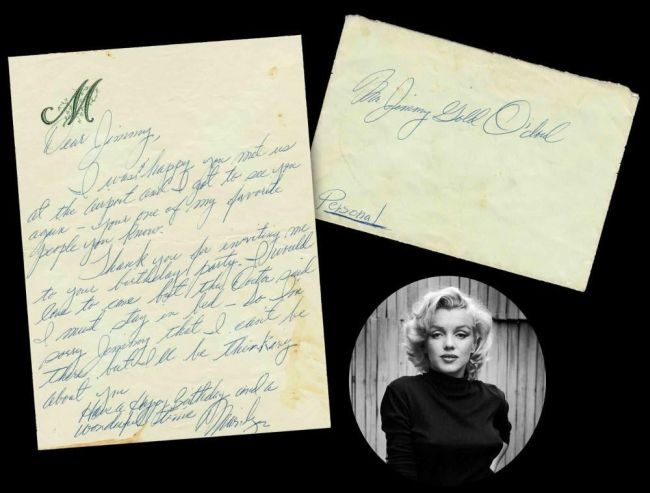 M
Dear Jimmy,
I was happy you met us
at the airport and I got to see you
again – Your one of my favorite
people you know.
Thank you for inviting me
to your birthday party. I would
love to come but the Doctor said
I must stay in bed – So I'm
sorry Jimmy that I can't be
there but I'll be thinking
about you
Have a happy Birthday and a
wonderful time
Marilyn
Jimmy Gold
Personal